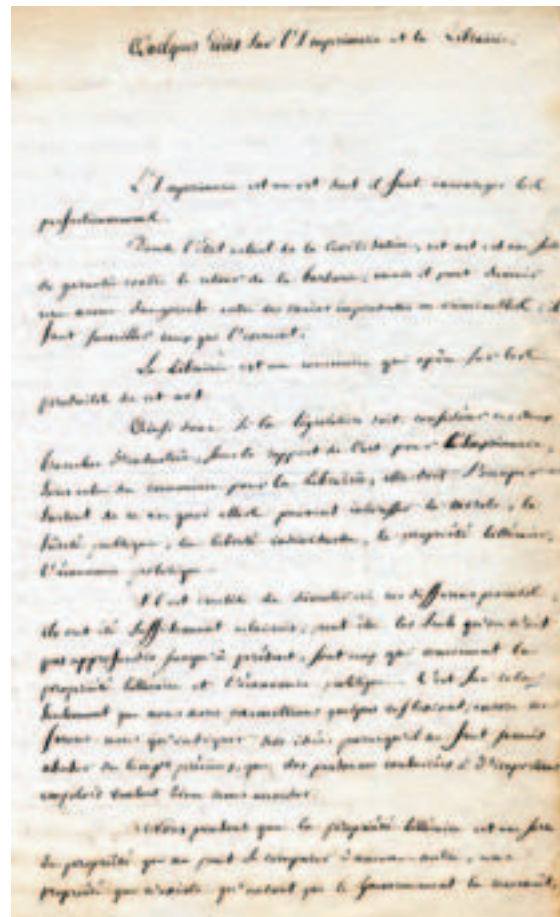 Quelques idées sur l'Imprimerie et la Librairie.
L'Imprimerie est un art dont il faut encourager les
perfectionnemens.
Dans l'état actuel de la Civilisation, cet art est un sûr
de garantie contre le retour de la barbarie, mais il peut devenir
une arme dangereuse entre des mains imprudentes ou criminelles, il
faut surveiller ceux qui l'exercent.
La Librairie est un commerce qui opère sur les
produits de cet art.
Ainsi donc si la législation doit considérer ces deux
branches d'industrie, sous le rapport de l'art pour l'Imprimerie,
sous celui du commerce pour la Librairie, elle doit s'occuper
surtout de ce en quoi elles peuvent intéresser la morale, la
sûreté publique, la liberté individuelle, la propriété littéraire,
l'économie politique.
Il est inutile de discuter ici ces différens points,
ils ont été suffisamment éclaircis, peut être les seuls qu'on n'ait
pas approfondis jusqu'à présent, sont ceux qui concernent la
propriété littéraire et l'économie publique. C'est sur cela
seulement que nous nous permettrons quelques réflexions, encore ne
ferons nous qu'indiquer des idées parce qu'il ne faut jamais
abuser du temps précieux, que des personnes à d'importans
emplois veulent bien nous accorder.
Nous pensons que la propriété littéraire est une
de propriété qui ne peut se comparer à aucune autre, une
propriété qui n'existe qu'autant que le Gouvernement la